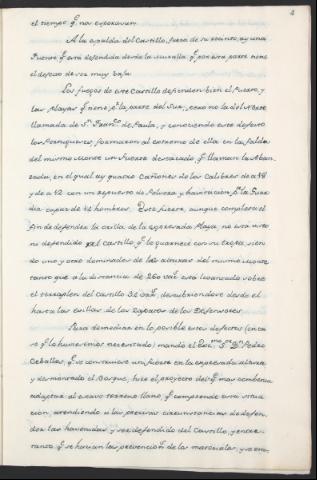 4
el tiempo q.e nos esperavan.
A la espalda del Castillo, fuera de su recinto, ay una
Fuente q.e está defendida desde la Muralla q.e por esta parte tiene
el defecto de ser muy baja.
Los fuegos de este Castillo defienden bien el Puerto, y
las Playas q.e tiene, p.r la parte del Sur, como no la del Norte
llamada de S.n Fran.co de Paula, y conociendo este defecto
los Portugueses, formaron al extremo de ella en la falda
del mismo Monte un Fuerte destacado q.e llaman la
en el qual ay quatro Cañones de los Calibres de a 18
y de a 12 con un repuesto de Polvora y havitacion p.a la Guar
dia capaz de 12 hombres. Este fuerte, aunque completa el
fin de defender la orilla de la expresada Playa, no está visto
ni defendido p.r el Castillo q.e lo guarnece con su tropa, sien
do uno y otro dominados de las alturas del mismo Monte
tanto que a la distancia de 260 var.s está levantado sobre
el terraplen del Castillo 32 var.s descubriendose desde él
hasta las orillas de los Zapatos de los Defensores.
Para remediar en lo posible estos defectos (en ca
so q.e lo huviesemos necesitado) mandó el Ex.mo S.r D.n Pedro
Ceballos, q.e se construyese un fuerte en la expresada altura
y desmontado el Bosque, hice el proyecto del q.e mas combenia
adaptar al escaso terreno llano, q.e comprende esta situa
cion, atendiendo a las precisas circunstancias de defen
der las havenidas y ser defendido del Castillo, y entre
tanto q.e se hacian las prevencion.s de los materiales, y se